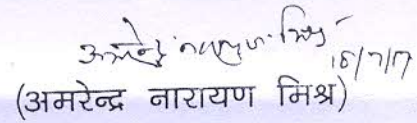 अमरेन्द्र नारायण मिश्र
18/7/17
(अमरेन्द्र नारायण मिश्र)